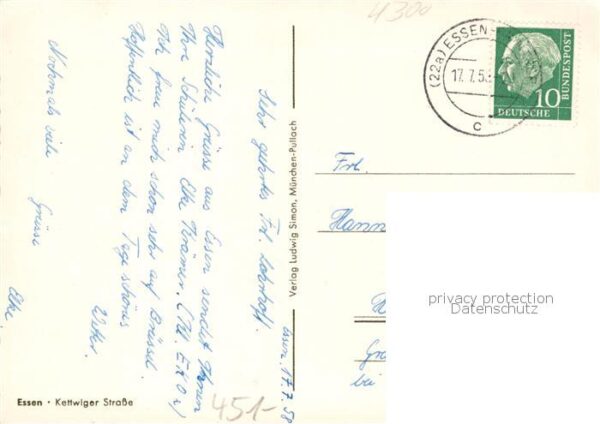 4300
(22a) ESSEN
17.7.58
c
10
DEUTSCHE
BUNDESPOST
Essen, 17.7.58
Sehr geehrtes Frl. Lohrhoff.
Herzliche Grüsse aus Essen sendet Ihnen
Ihre Schülerin Elke Krämer.
Ich freue mich schon sehr auf Brüssel.
Hoffentlich ist an dem Tage schönes
Wetter.
Nochmals viele
Grüsse
Elke.
Verlag Ludwig Simon, München-Pullach
Frl.
Hann
bei
privacy protection
Datenschutz
Essen · Kettwiger Straße
451-